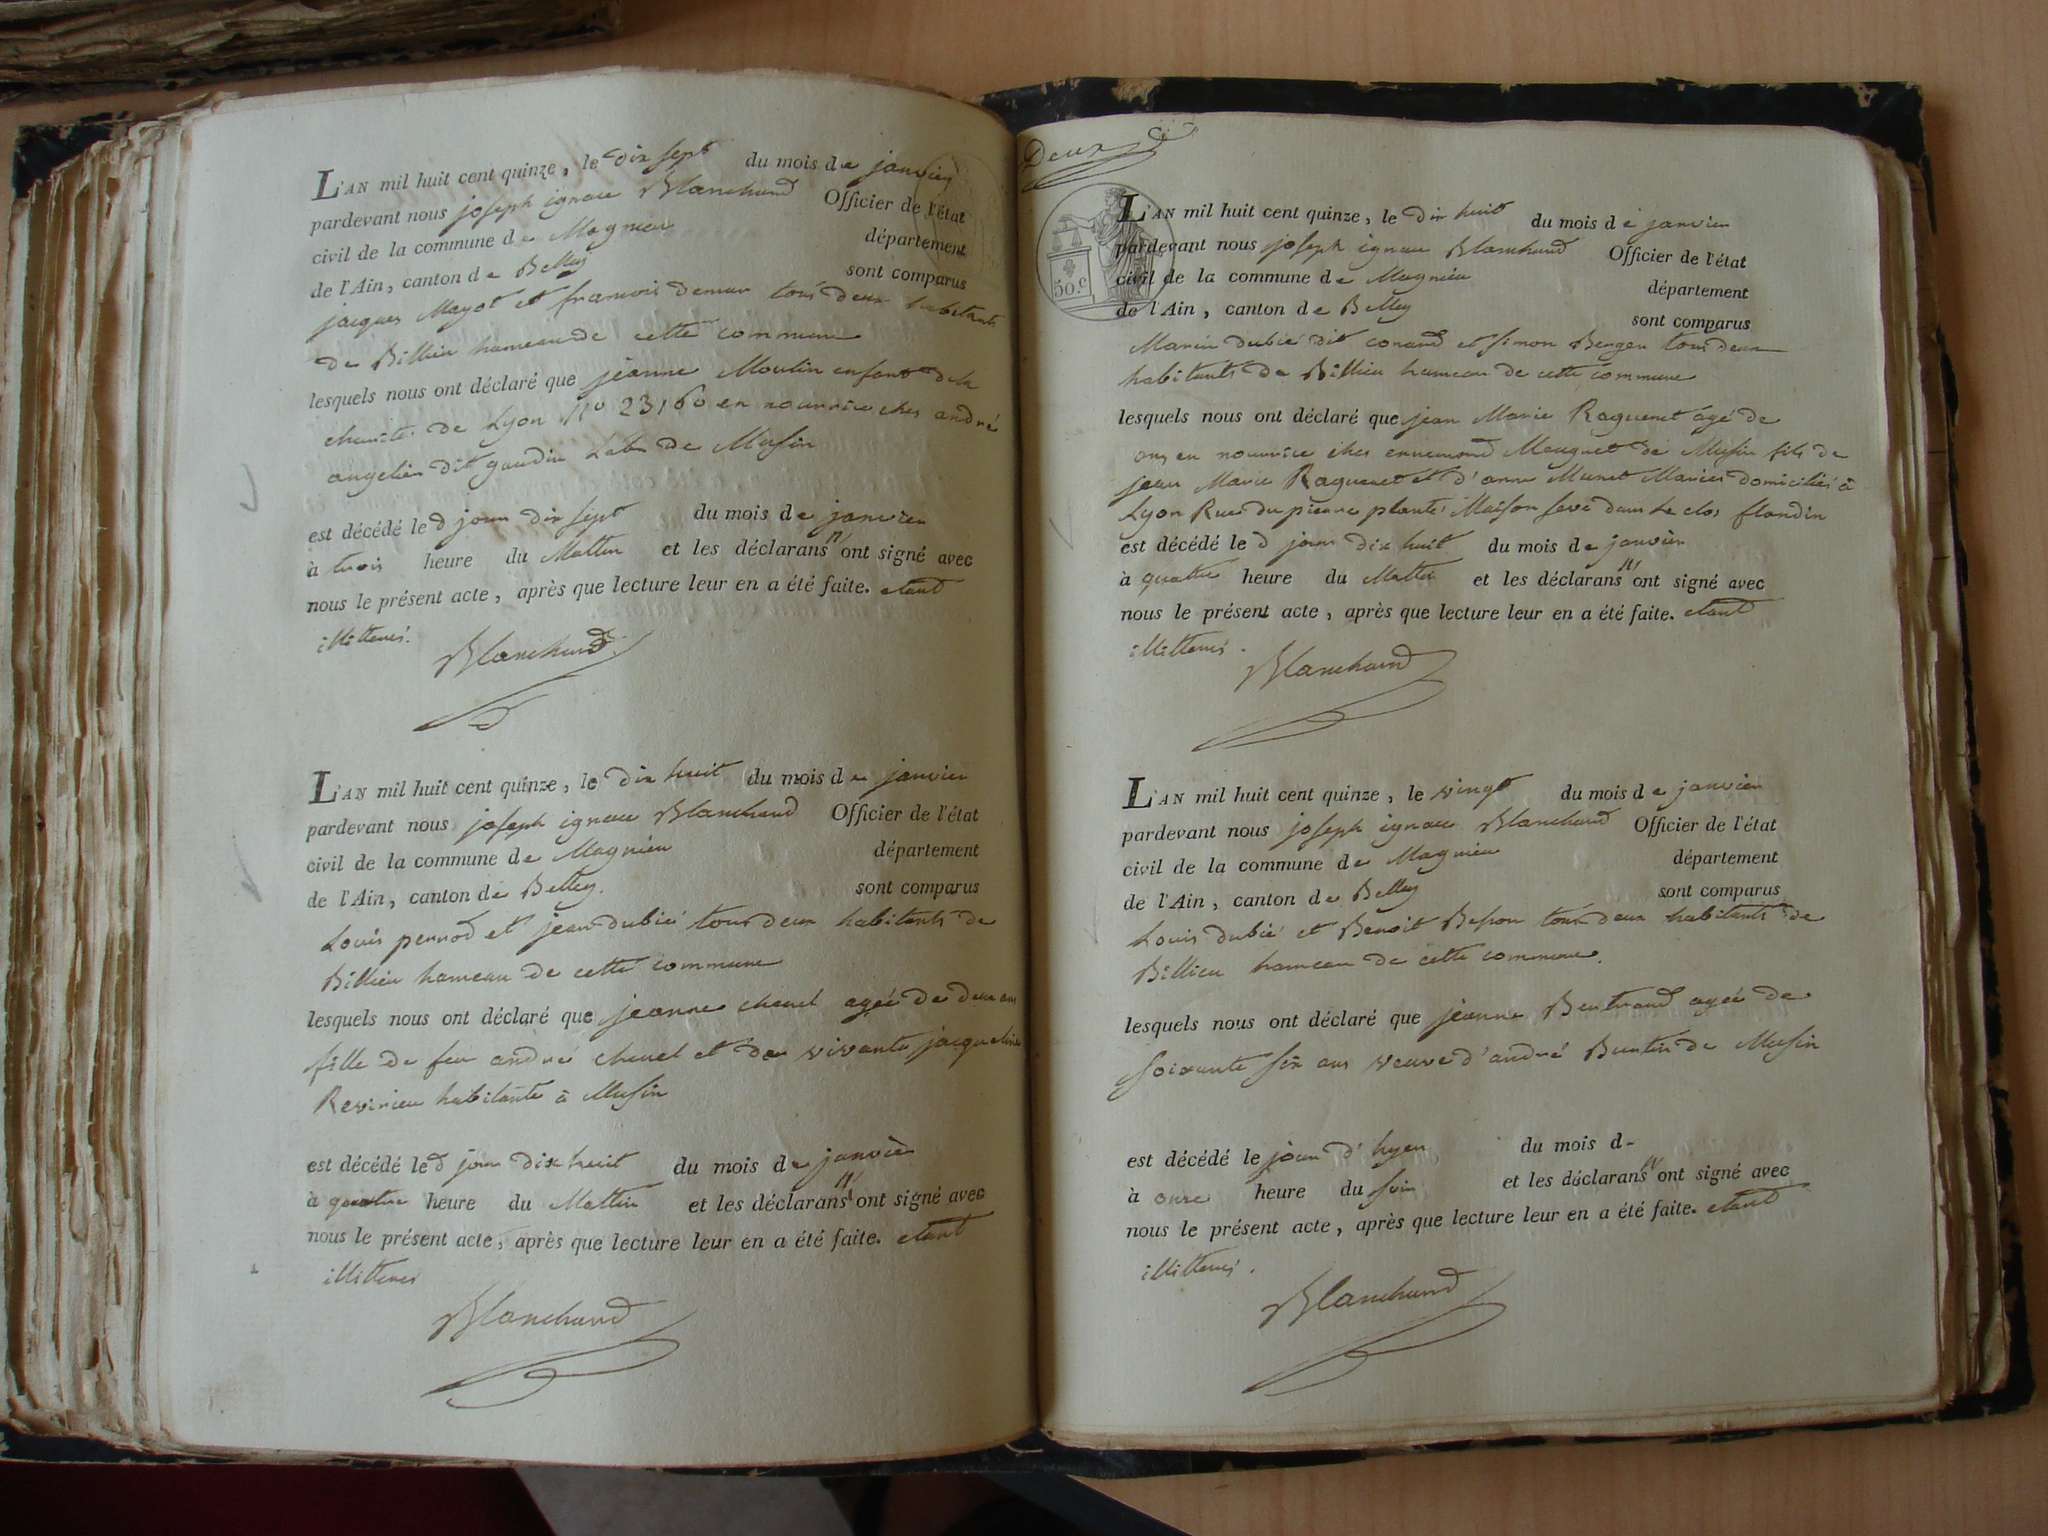 L'AN mil huit cent quinze, le dix sept du mois de janvier
pardevant nous joseph ignace Blanchard Officier de l'état
civil de la commune de Magnieu département
de l'Ain, canton de Belley sont comparus
jacques Mayot et francois tous deux habitants
de Billieu hameau de cette commune
lesquels nous ont déclaré que jeanne Moulin enfant de la
charité de Lyon No 23160 en nourrice ches andré
angelier dit gaudin de Musin
est décédé led jour dix sept du mois de janvier
à trois heure du Mattin et les déclarans n'ont signé avec
nous le présent acte, après que lecture leur en a été faite. etant
illitterés.
Blanchard
L'AN mil huit cent quinze, le dix huit du mois de janvier
pardevant nous joseph ignace Blanchard Officier de l'état
civil de la commune de Magnieu département
de l'Ain, canton de Belley. sont comparus
Louis pernod et jean dubié tous deux habitants de
Billieu hameau de cette commune
lesquels nous ont déclaré que jeanne agée de deux ans
fille de feu andré et de vivante jacqueline
Revirieu habitante à Musin
est décédé led jour dix huit du mois de janvier
à quatre heure du Mattin et les déclarans n'ont signé avec
nous le présent acte, après que lecture leur en a été faite. etant
illitterés
Blanchard
Deux
50.c
L'AN mil huit cent quinze, le dix huit du mois de janvier
pardevant nous joseph ignace Blanchard Officier de l'état
civil de la commune de Magnieu département
de l'Ain, canton de Belley sont comparus
Marin dubié dit conand et Simon Berger tous deux
habitants de Billieu hameau de cette commune
lesquels nous ont déclaré que jean Marie Raguenet agé de
ans en nourrice ches ennemond Meuguet de Musin fils de
jean Marie Raguenet et d'anne Munet Mariés domiciliés à
Lyon Rue du pierre planté Maison seve dans le clos flandin
est décédé le d jour dix huit du mois de janvier
à quatre heure du Mattin et les déclarans n'ont signé avec
nous le présent acte, après que lecture leur en a été faite. etant
illitterés.
Blanchard
L'AN mil huit cent quinze, le vingt du mois de janvier
pardevant nous joseph ignace Blanchard Officier de l'état
civil de la commune de Magnieu département
de l'Ain, canton de Belley sont comparus
Louis dubié et Benoit Besson tous deux habitants de
Billieu hameau de cette commune.
lesquels nous ont déclaré que jeanne Bertrand agée de
soixante six ans veuve d'andré Burtin de Musin
est décédé le jour d'hyer du mois d-
à onze heure du soir et les déclarans n'ont signé avec
nous le présent acte, après que lecture leur en a été faite. etant
illitterés.
Blanchard